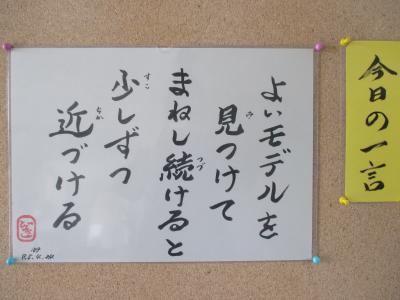 今日の一言
よいモデルを
見つけて
まねし続けると
少しずつ
近づける
み
つづ
すこ
ちか